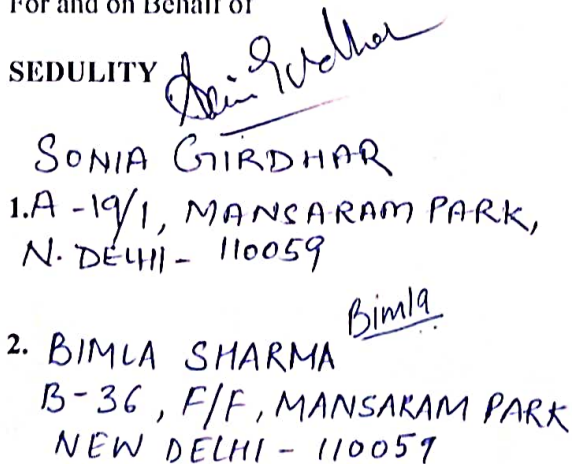 For and on Behalf of
SEDULITY
SONIA GIRDHAR
1. A-19/1, MANSARAM PARK,
N. DELHI - 110059
Bimla
2. BIMLA SHARMA
B-36, F/F, MANSARAM PARK
NEW DELHI - 110059